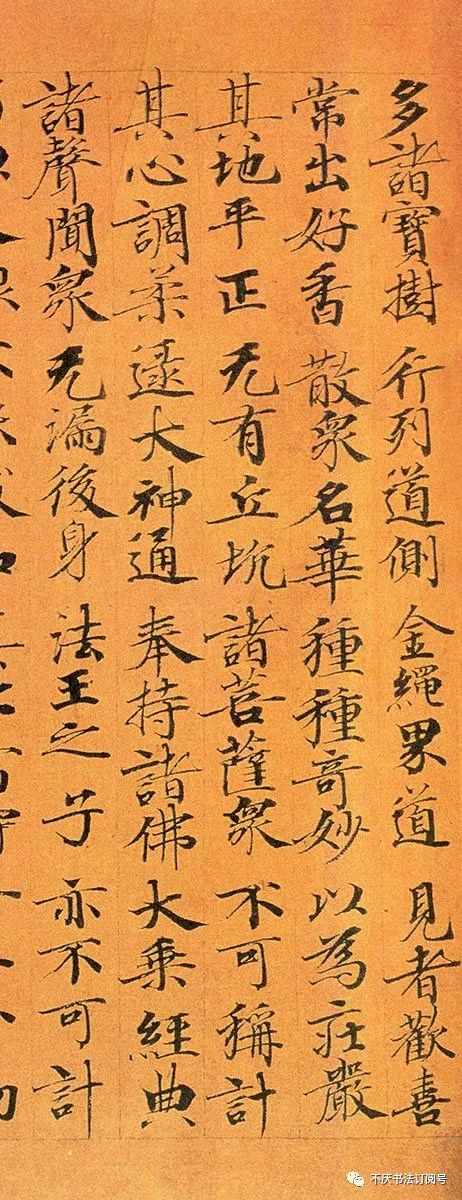 多諸寶樹 行列道側 金繩界道 見者歡喜
常出好香 散眾名華 種種奇妙 以為莊嚴
其地平正 无有丘坑 諸菩薩眾 不可稱計
其心調柔 逮大神通 奉持諸佛 大乘經典
諸聲聞眾 无漏後身 法王之子 亦不可計
不厌书法订阅号